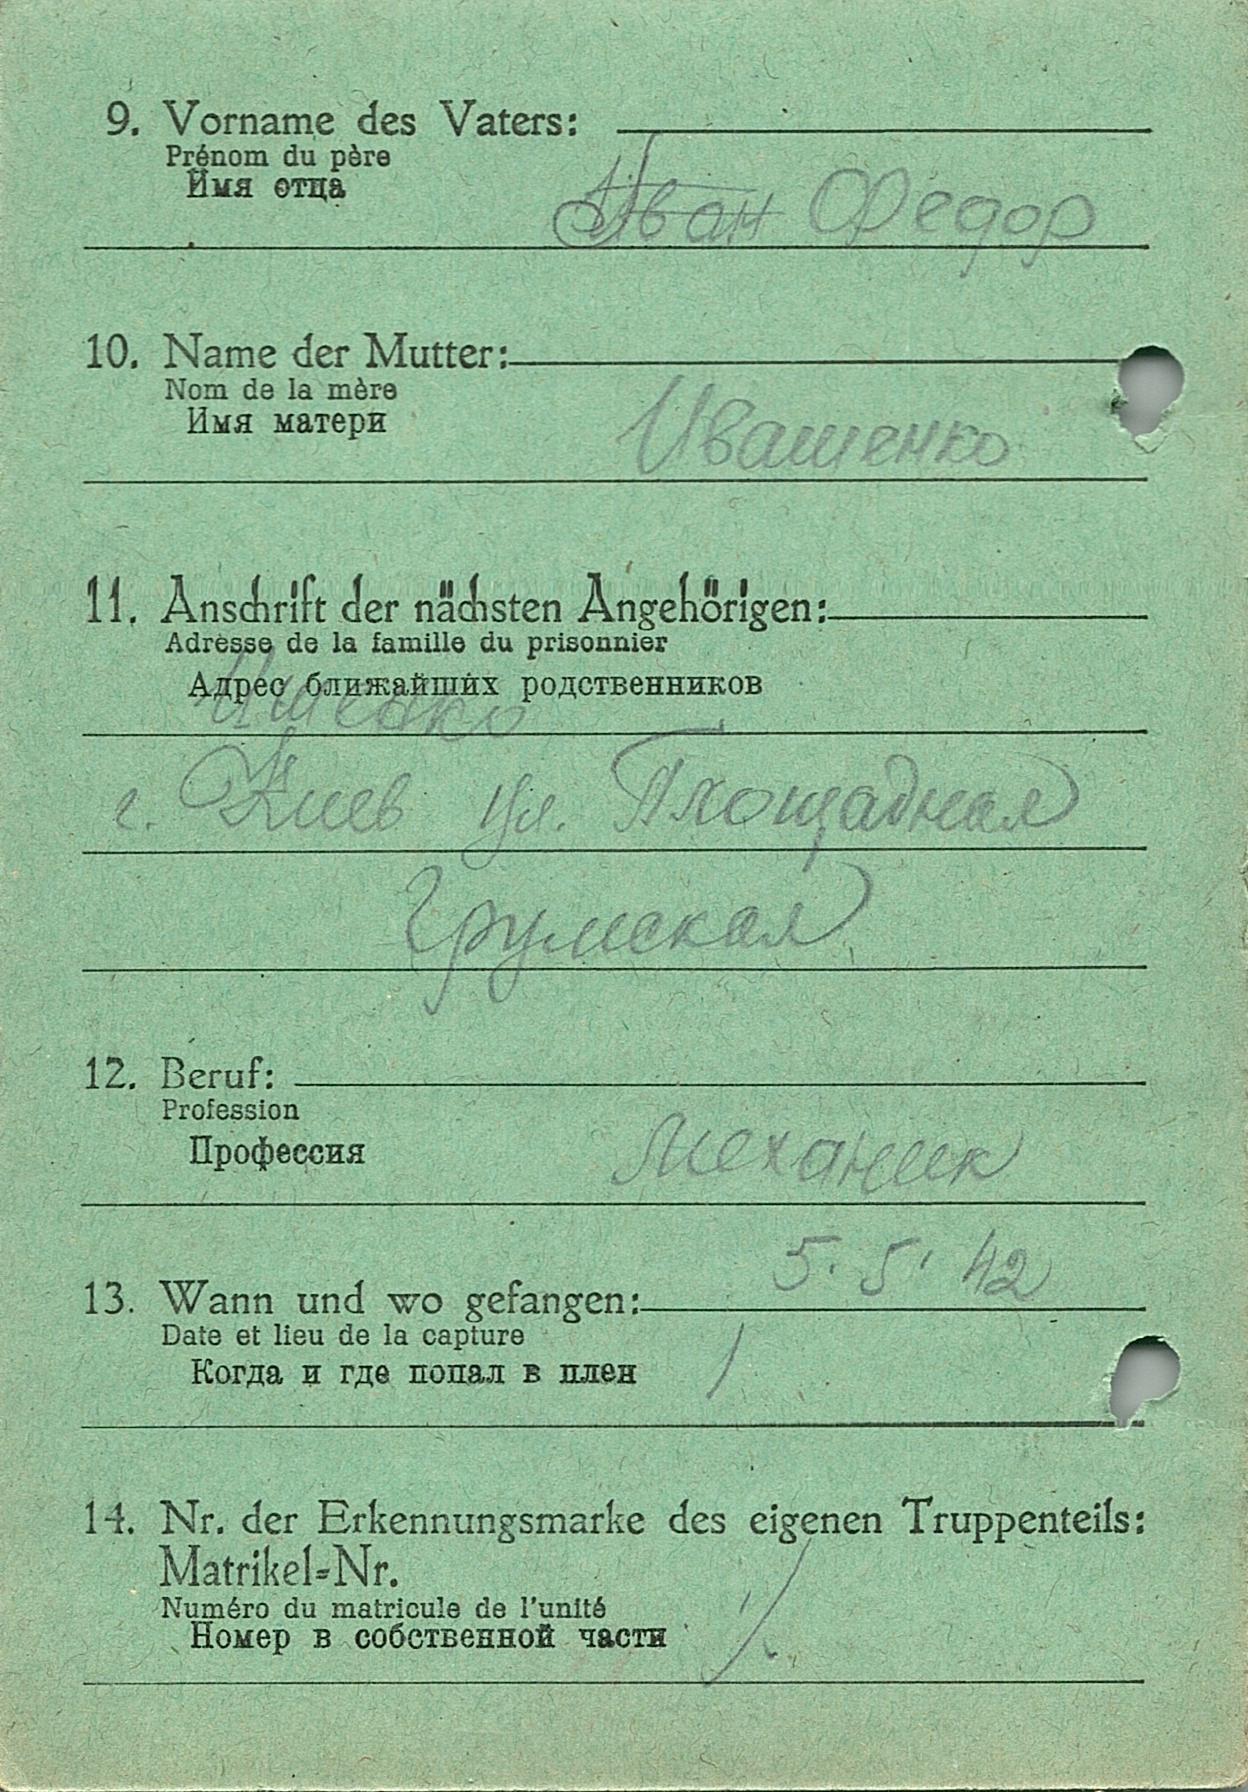 9. Vorname des Vaters:
Prénom du père
Имя отца
Иван Федор
10. Name der Mutter:
Nom de la mère
Имя матери
Ивашенко
11. Anschrift der nächsten Angehörigen:
Adresse de la famille du prisonnier
Адрес ближайших родственников
г. Киев ул. Площадная
12. Beruf:
Profession
Профессия
Механик
5. 5. 42
13. Wann und wo gefangen:
Date et lieu de la capture
Когда и где попал в плен
14. Nr. der Erkennungsmarke des eigenen Truppenteils:
Matrikel-Nr.
Numéro du matricule de l'unité
Номер в собственной части